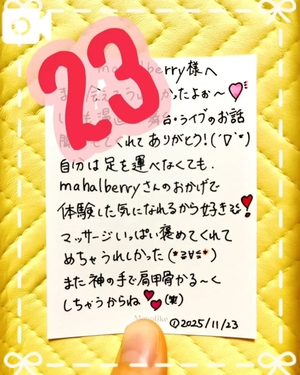 23
mahalberry様へ
また会えてうれしかったよぉ〜
いつも温泉・舞台・ライブのお話
聞かせてくれてありがとう！(´▽`*)
自分は足を運べなくても、
mahalberryさんのおかげで
体験した気になれるから好き
マッサージいっぱい褒めてくれて
めちゃうれしかった (*≧∀≦*)
また神の手で肩甲骨かる〜く
しちゃうからね (笑)
©2025/11/23